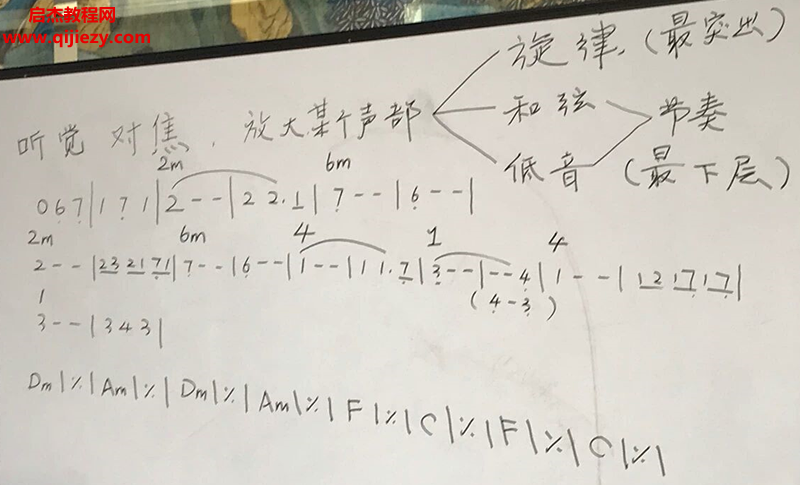 启杰教程网
www.qijiezy.com
旋律.(最突出)
听觉 对焦，放大某个声部 和弦 节奏
低音 (最下层)
2m 6m
0 6 7 | 1 7 1 | 2 - - | 2 2. 1 | 7 - - | 6 - - |
2m 6m 4 1 4
2 - - | 23 21 71 | 7 - - | 6 - - | 1 - - | 1 1. 7 | 3 - - | - - 4 | 1 - - | 12 17 17 |
(4-3)
1
3 - - | 3 4 3 |
Dm | ٪ | Am | ٪ | Dm | ٪ | Am | ٪ | F | ٪ | C | ٪ | F | ٪ | C | ٪ |